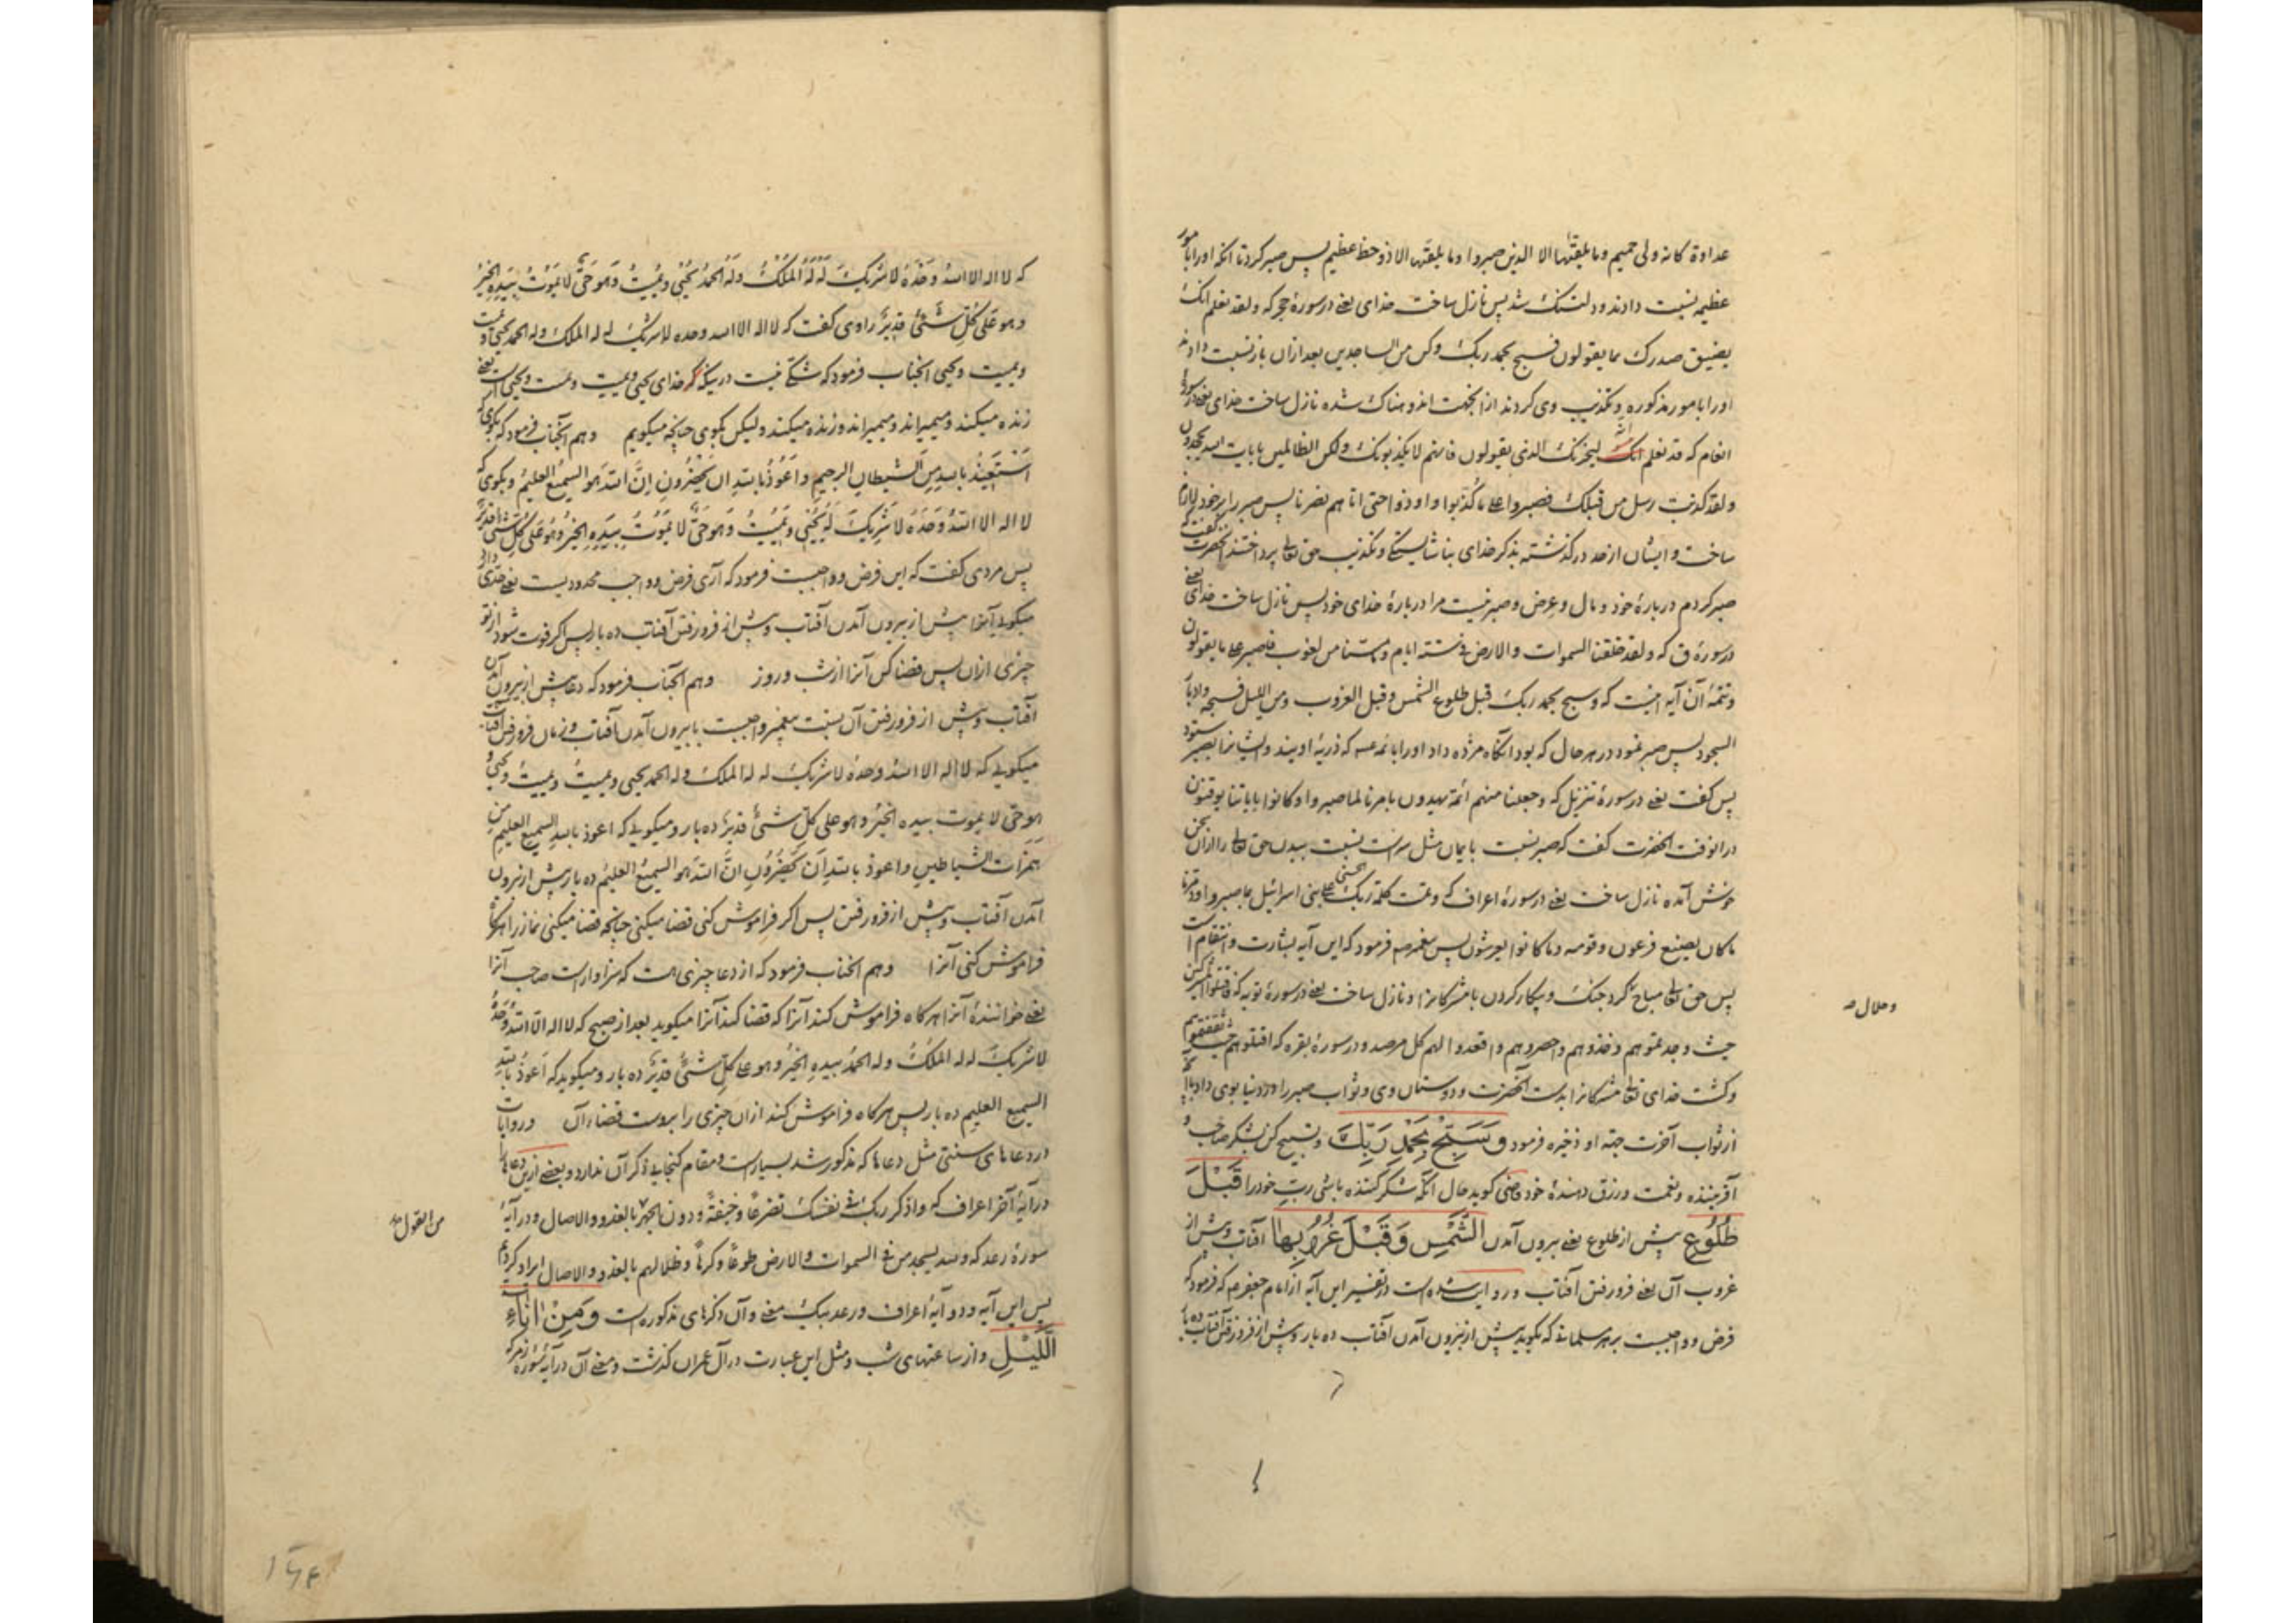 عداوة كانه ولى حميم وما يلقيها الا الذين صبروا وما يلقيها الا ذو حظ عظيم پس صبر كرد تا انكه او را بامور
عظيمه نسبت دادند و دلتنك شد پس نازل ساخت خداى يعنى در سورۀ حجر كه ولقد نعلم انك
يضيق صدرك بما يقولون فسبح بحمد ربك وكن من الساجدين بعد ازان باز نسبت دادند
او را بامور مذكوره و تكذيب وى كردند از انجهت اندوهناك شده نازل ساخت خداى يعنى در سورۀ
انعام كه قد نعلم انه ليحزنك الذى يقولون فانهم لا يكذبونك ولكن الظالمين بايات الله يجحدون
ولقد كذبت رسل من قبلك فصبروا على ما كذبوا واوذوا حتى اتاهم نصرنا پس صبر را بر خود لازم
ساخت و ايشان از حد در گذشته بذكر خداى بناشايستگى و تكذيب حق تعالى پرداختند انحضرت گفت كه
صبر كردم دربارۀ خود و مال و عرض و صبر نيست مرا دربارۀ خداى خود پس نازل ساخت خداى يعنى
در سورۀ ق كه ولقد خلقنا السموات والارض فى ستة ايام وما مسنا من لغوب فاصبر على ما يقولون
و تتمۀ آن آيه اينست كه وسبح بحمد ربك قبل طلوع الشمس وقبل الغروب ومن الليل فسبحه وادبار
السجود پس صبر نمود در هر حال كه بود انگاه مژده داد او را بائمه عه كه ذريۀ اويند و ايشانرا بصبر ستود
پس گفت يعنى در سورۀ تنزيل كه وجعلنا منهم ائمة يهدون بامرنا لما صبروا وكانوا باياتنا يوقنون
در انوقت انحضرت گفت كه صبر نسبت بايمان مثل سر است نسبت ببدن حق تعالى را ازان سخن
خوش آمده نازل ساخت يعنى در سورۀ اعراف كه وتمت كلمة ربك الحسنى على بنى اسرائيل بما صبروا ودمرنا
ما كان يصنع فرعون وقومه وما كانوا يعرشون پس پيغمبر صه فرمود كه اين آيه بشارت و انتقام است
پس حق تعالى مباح كرد جنك و پيكار كردن با مشركانرا و نازل ساخت يعنى در سورۀ توبه كه فاقتلوا المشركين
حيث وجدتموهم وخذوهم واحصروهم واقعدوا لهم كل مرصد و در سورۀ بقره كه اقتلوهم حيث ثقفتموهم
و كشت خداى تعالى مشركانرا بدست آنحضرت و دوستان وى و ثواب صبر را در دنيا بوى داد با انچه
از ثواب آخرت جهة او ذخيره فرمود وَسَبِّحْ بِحَمْدِ رَبِّكَ و تسبيح كن بشكر صاحب و
آفريننده و نعمت و رزق دهندۀ خود قاضى گويد حال آنكه شكر كننده باشى ربّ خود را قَبْلَ
طُلُوعِ پيش از طلوع يعنى بيرون آمدن الشَّمْسِ وَقَبْلَ غُرُوبِهَا آفتاب و پيش از
غروب آن يعنى فرو رفتن آفتاب و روايت شده است در تفسير اين آيه از امام جعفر صه كه فرمود كه
فرض و واجبست بر هر مسلمانى كه بگويد پيش از بيرون آمدن آفتاب ده بار و پيش از فرو رفتن آفتاب ده بار
و حلال صه
كه لا اله الا الله وَحْدَهُ لا شريكَ لَهُ لَهُ المُلْكُ وَلَهُ الحمدُ يُحْيى ويُميتُ وَهو حَىٌّ لا يَمُوتُ بِيَدِهِ الخَيْرُ
وهو عَلى كُلِّ شَىْءٍ قديرٌ راوى گفت كه لا اله الا الله وحده لا شريك له له الملك وله الحمد يحيى ويميت
ويميت ويحيى انجناب فرمود كه شكى نيست دريكه كه خداى يحيى ويميت ويميت ويحيى است يعنى
زنده ميكند و ميميراند و ميميراند و زنده ميكند و ليكن بگوى چنانچه ميگويم وهم آنجناب فرمود كه بگوى كه
اَسْتَعيذُ بالله مِنَ الشيطانِ الرجيمِ واَعُوذُ بالله ان يَحْضُرُونِ اِنَّ الله هو السميعُ العليمُ و بگوى كه
لا اله الا اللهُ وَحْدَهُ لا شَريكَ لَهُ يُحْيى ويُمِيتُ وَهو حَىٌّ لا يَمُوتُ بِيَدِهِ الخيرُ وهُوَ عَلى كُلِّ شَىْءٍ قديرٌ
پس مردى گفت كه اين فرض و واجبست فرمود كه آرى فرض و واجب محدوديست يعنى حدى دارد
ميگويى آنرا پيش از بيرون آمدن آفتاب و پيش از فرو رفتن آفتاب ده بار پس اگر فوت شود از تو
چيزى ازان پس قضا كن آنرا از شب و روز وهم آنجناب فرمود كه دعا پيش از بيرون آمدن
آفتاب و پيش از فرو رفتن آن سنت پيغمبر واجبست با بيرون آمدن آفتاب و زمان فرو رفتن آفتاب
ميگويى كه لا اله الا اللهُ وحدهُ لا شريك له له الملك وله الحمد يحيى ويميتُ ويميتُ ويحيى و
هو حىّ لا يموت بيده الخيرُ وهو على كلّ شىءٍ قديرٌ ده بار و ميگويى كه اعوذ بالله السميع العليمِ من
هَمَزاتِ الشياطينِ واعوذ بالله اَن يَحْضُرُونِ اِنَّ الله هو السميعُ العليمُ ده بار پيش از بيرون
آمدن آفتاب و پيش از فرو رفتن پس اگر فراموش كنى قضا ميكنى چنانچه قضا ميكنى نماز را هرگاه
فراموش كنى آنرا وهم انجناب فرمود كه از دعا چيزى هست كه سزاوار است صاحب آنرا
يعنى خوانندۀ آنرا هرگاه فراموش كند آنرا كه قضا كند آنرا ميگويد بعد از صبح كه لا اله الّا اللهُ وَحدهُ
لا شريكَ له له الملكُ وله الحمدُ بيدهِ الخيرُ وهو على كلّ شىءٍ قديرٌ ده بار و ميگويد كه اَعوذُ بالله
السميعِ العليمِ ده بار پس هرگاه فراموش كند ازان چيزى را بروست قضاء آن و روايات
در دعاهاى سنتى مثل دعاها كه مذكور شد بسيار است و مقام گنجايى ذكر آن ندارد و بعضى ازين دعاها
در آيۀ آخر اعراف كه واذكر ربك فى نفسك تضرعًا وخيفةً ودون الجهر بالغدو والاصال و در آيۀ
من القول صه
سورۀ رعد كه ولله يسجد من فى السموات والارض طوعًا وكرهًا وظلالهم بالغدو والاصال ايراد كرديم
پس اين آيه و دو آيۀ اعراف و رعد بيك معنى و آن ذكرهاى مذكوره است وَمِنْ اٰنَاءِ
اللَّيْلِ و از ساعتهاى شب و مثل اين عبارت در آل عمران گذشت و معنى آن در آيۀ سورۀ زمر كه